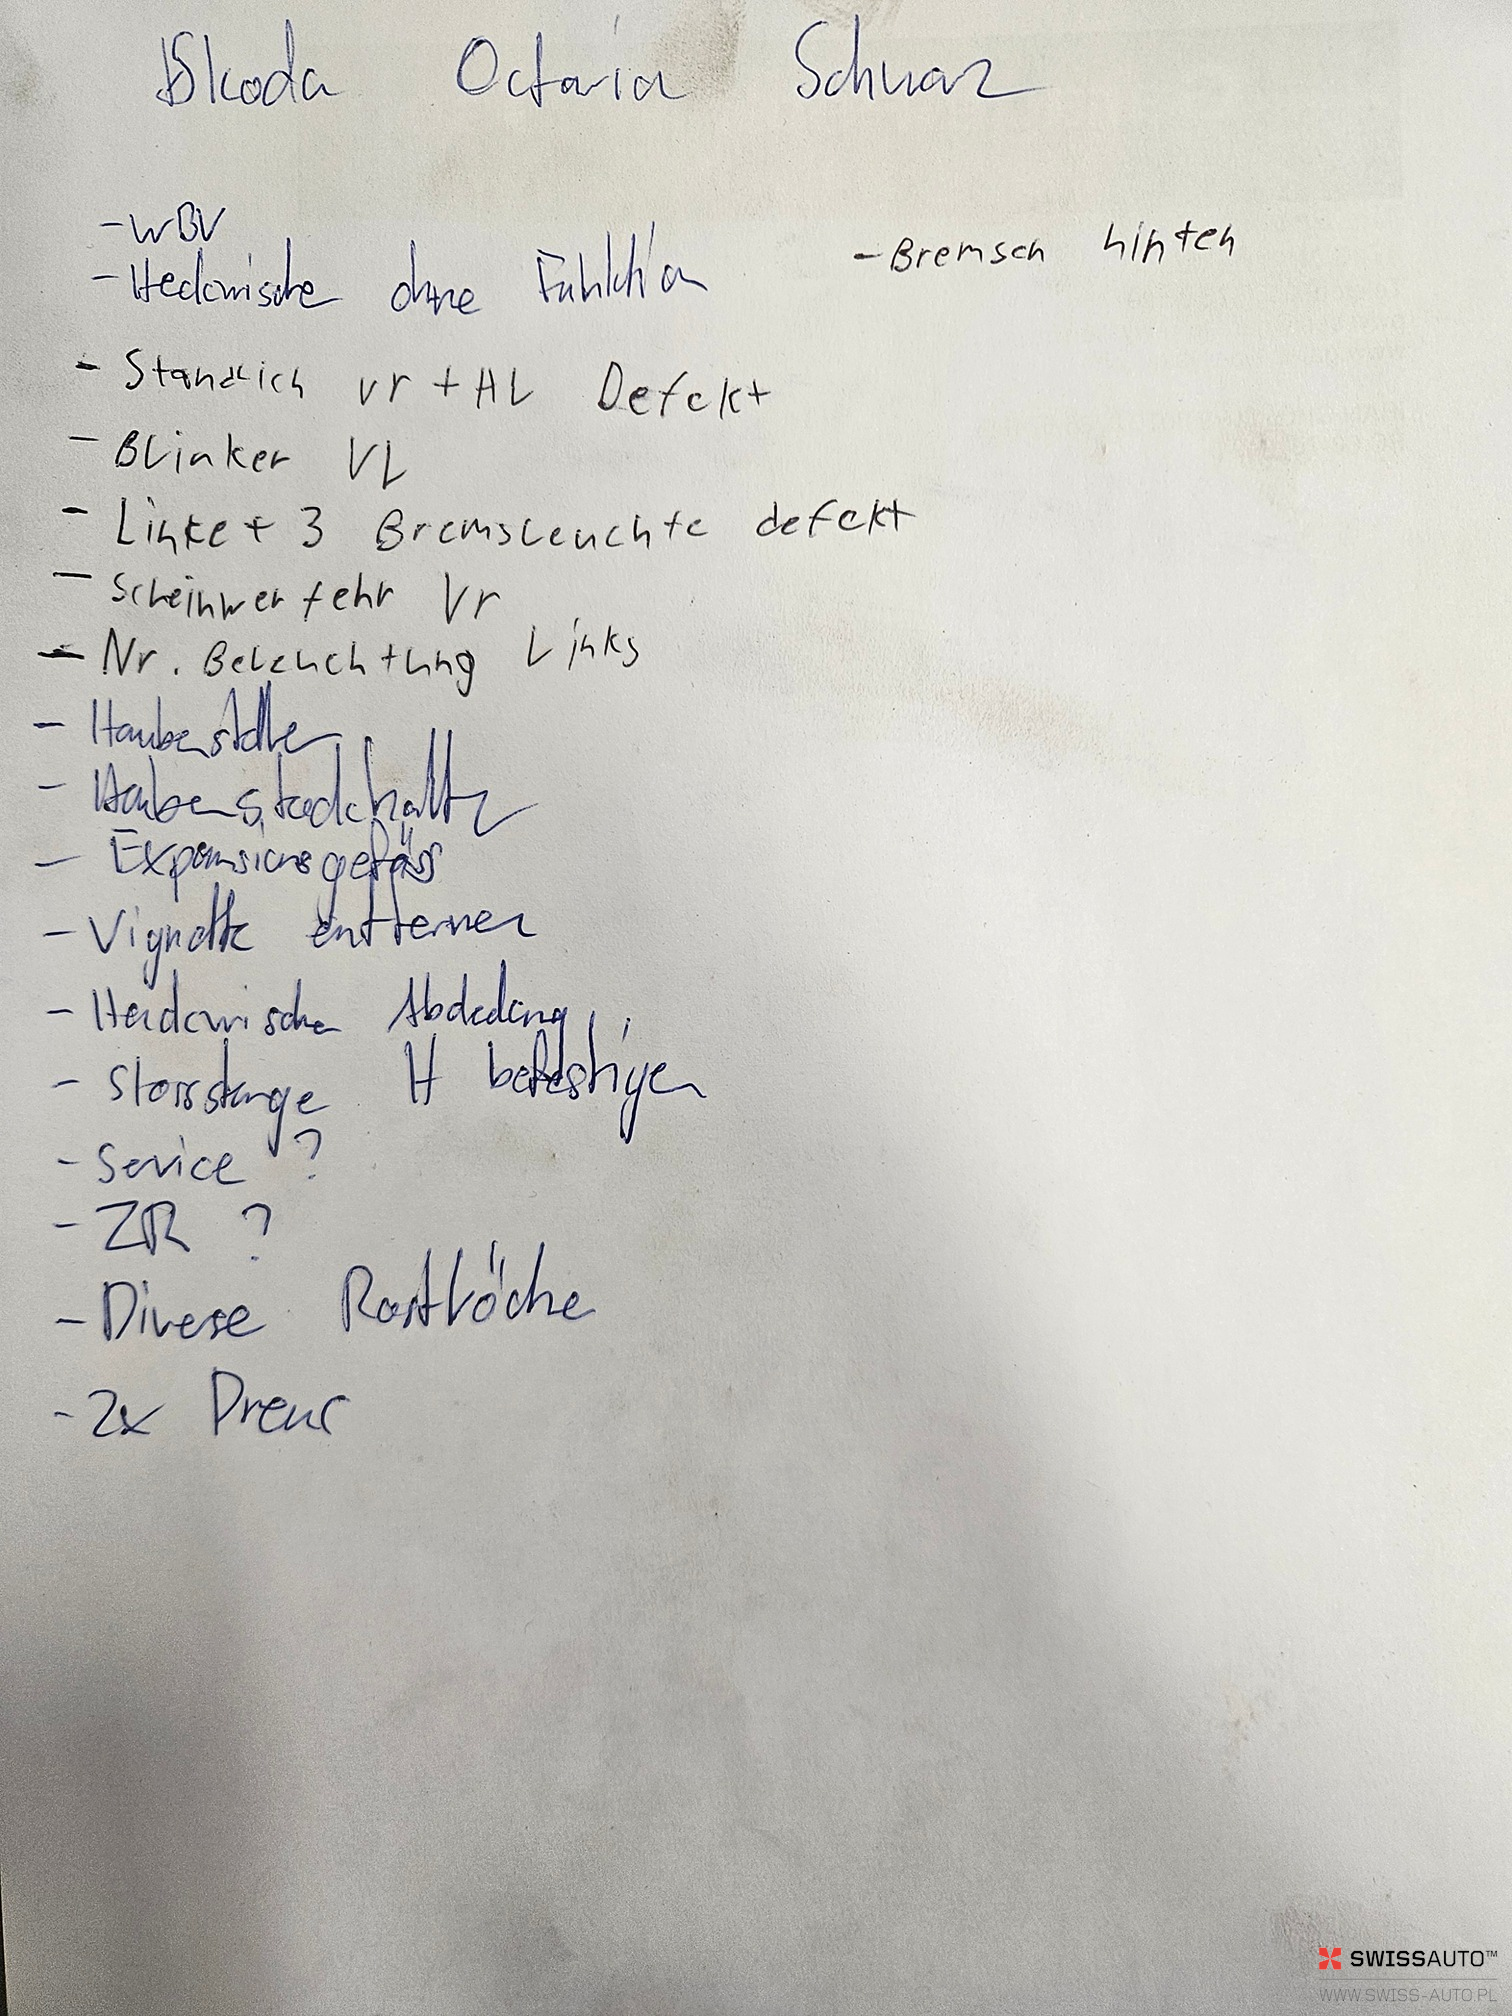 Skoda Octavia Schwarz
- WBV
- Heckwische ohne Funktion
- Bremsen hinten
- Standlich vr + HL Defekt
- Blinker VL
- Linke + 3 Bremsleuchte defekt
- Scheinwerfehr Vr
- Nr. Beleuchtung Links
- Haubensteller
- Haubenstockhalter
- Expansionsgefäss
- Vignette entfernen
- Heckwischer Abdeckung
- Stossstange H befestigen
- Service ?
- ZR ?
- Diverse Rostlöcher
- 2x Pneus
SWISSAUTO™
WWW.SWISS-AUTO.PL